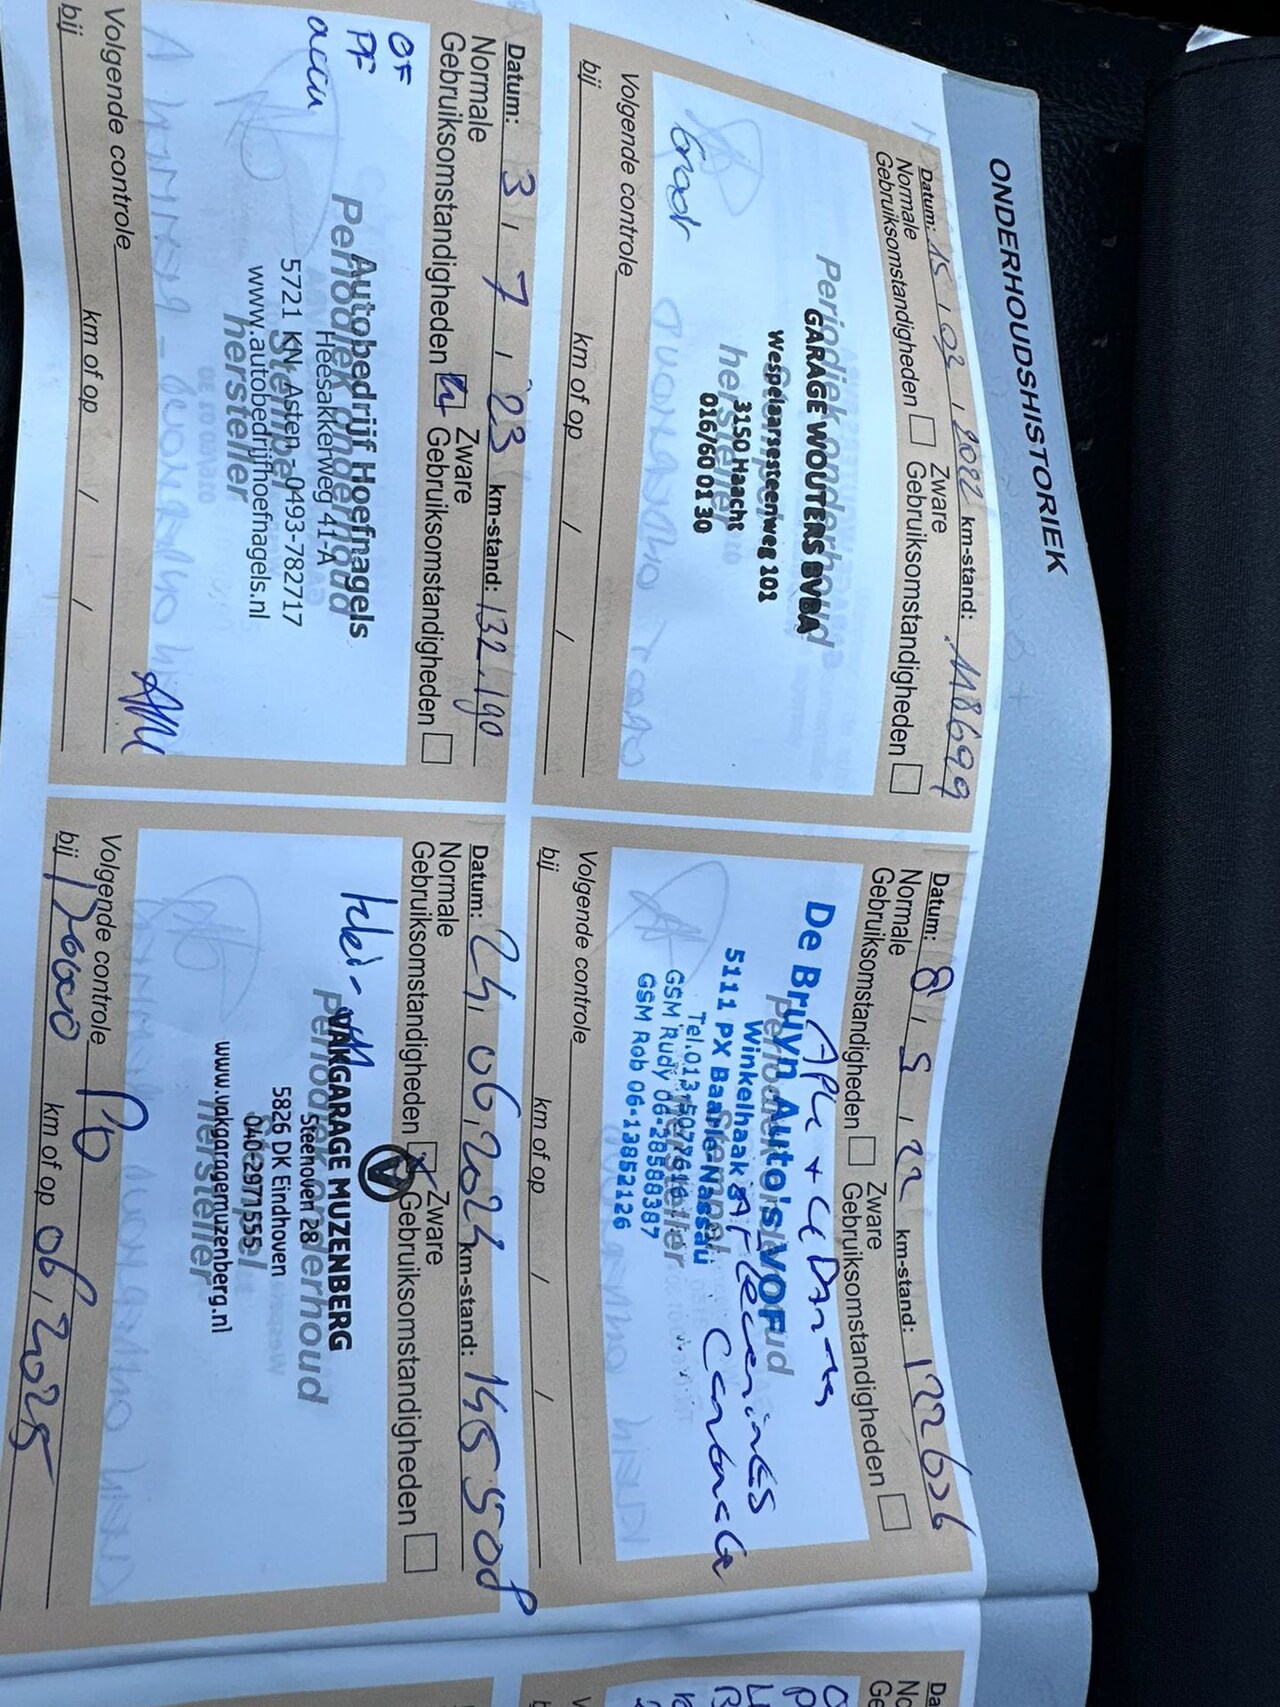 ONDERHOUDSHISTORIEK
Datum: 15 / 03 / 2022 km-stand: 118699
Normale Gebruiksomstandigheden ☐ Zware Gebruiksomstandigheden ☐
Periodiek onderhoud
GARAGE WOUTERS BVBA
Wespelaarsesteenweg 101
hersteller
3150 Haacht
016/60 01 30
Groot
Volgende controle
bij km of op / /
Datum: 8 / 5 / 22 km-stand: 122626
Normale Gebruiksomstandigheden ☐ Zware Gebruiksomstandigheden ☐
APK +
De Bruyn Auto's VOF
Periodiek onderhoud
Winkelhaak
5111 PX Baarle-Nassau
Tel. 013-5077616
GSM Rudy 06-28588387
GSM Rob 06-13852126
Stempel
hersteller
Volgende controle
bij km of op / /
Datum: 3 / 7 / 23 km-stand: 132.190
Normale Gebruiksomstandigheden ☒ Zware Gebruiksomstandigheden ☐
OF
PF
Autobedrijf Hoefnagels
Periodiek onderhoud
Heesakkerweg 41-A
5721 KN Asten - 0493-782717
Stempel
www.autobedrijfhoefnagels.nl
hersteller
Volgende controle
bij km of op / /
Datum: 24 / 06 / 2024 km-stand: 145 500
Normale Gebruiksomstandigheden ☒ Zware Gebruiksomstandigheden ☐
VAKGARAGE MUZENBERG
Periodiek onderhoud
Steenoven 28
5826 DK Eindhoven
040-2971555
Stempel
www.vakgaragemuzenberg.nl
hersteller
Volgende controle
bij km of op 06 / 2025